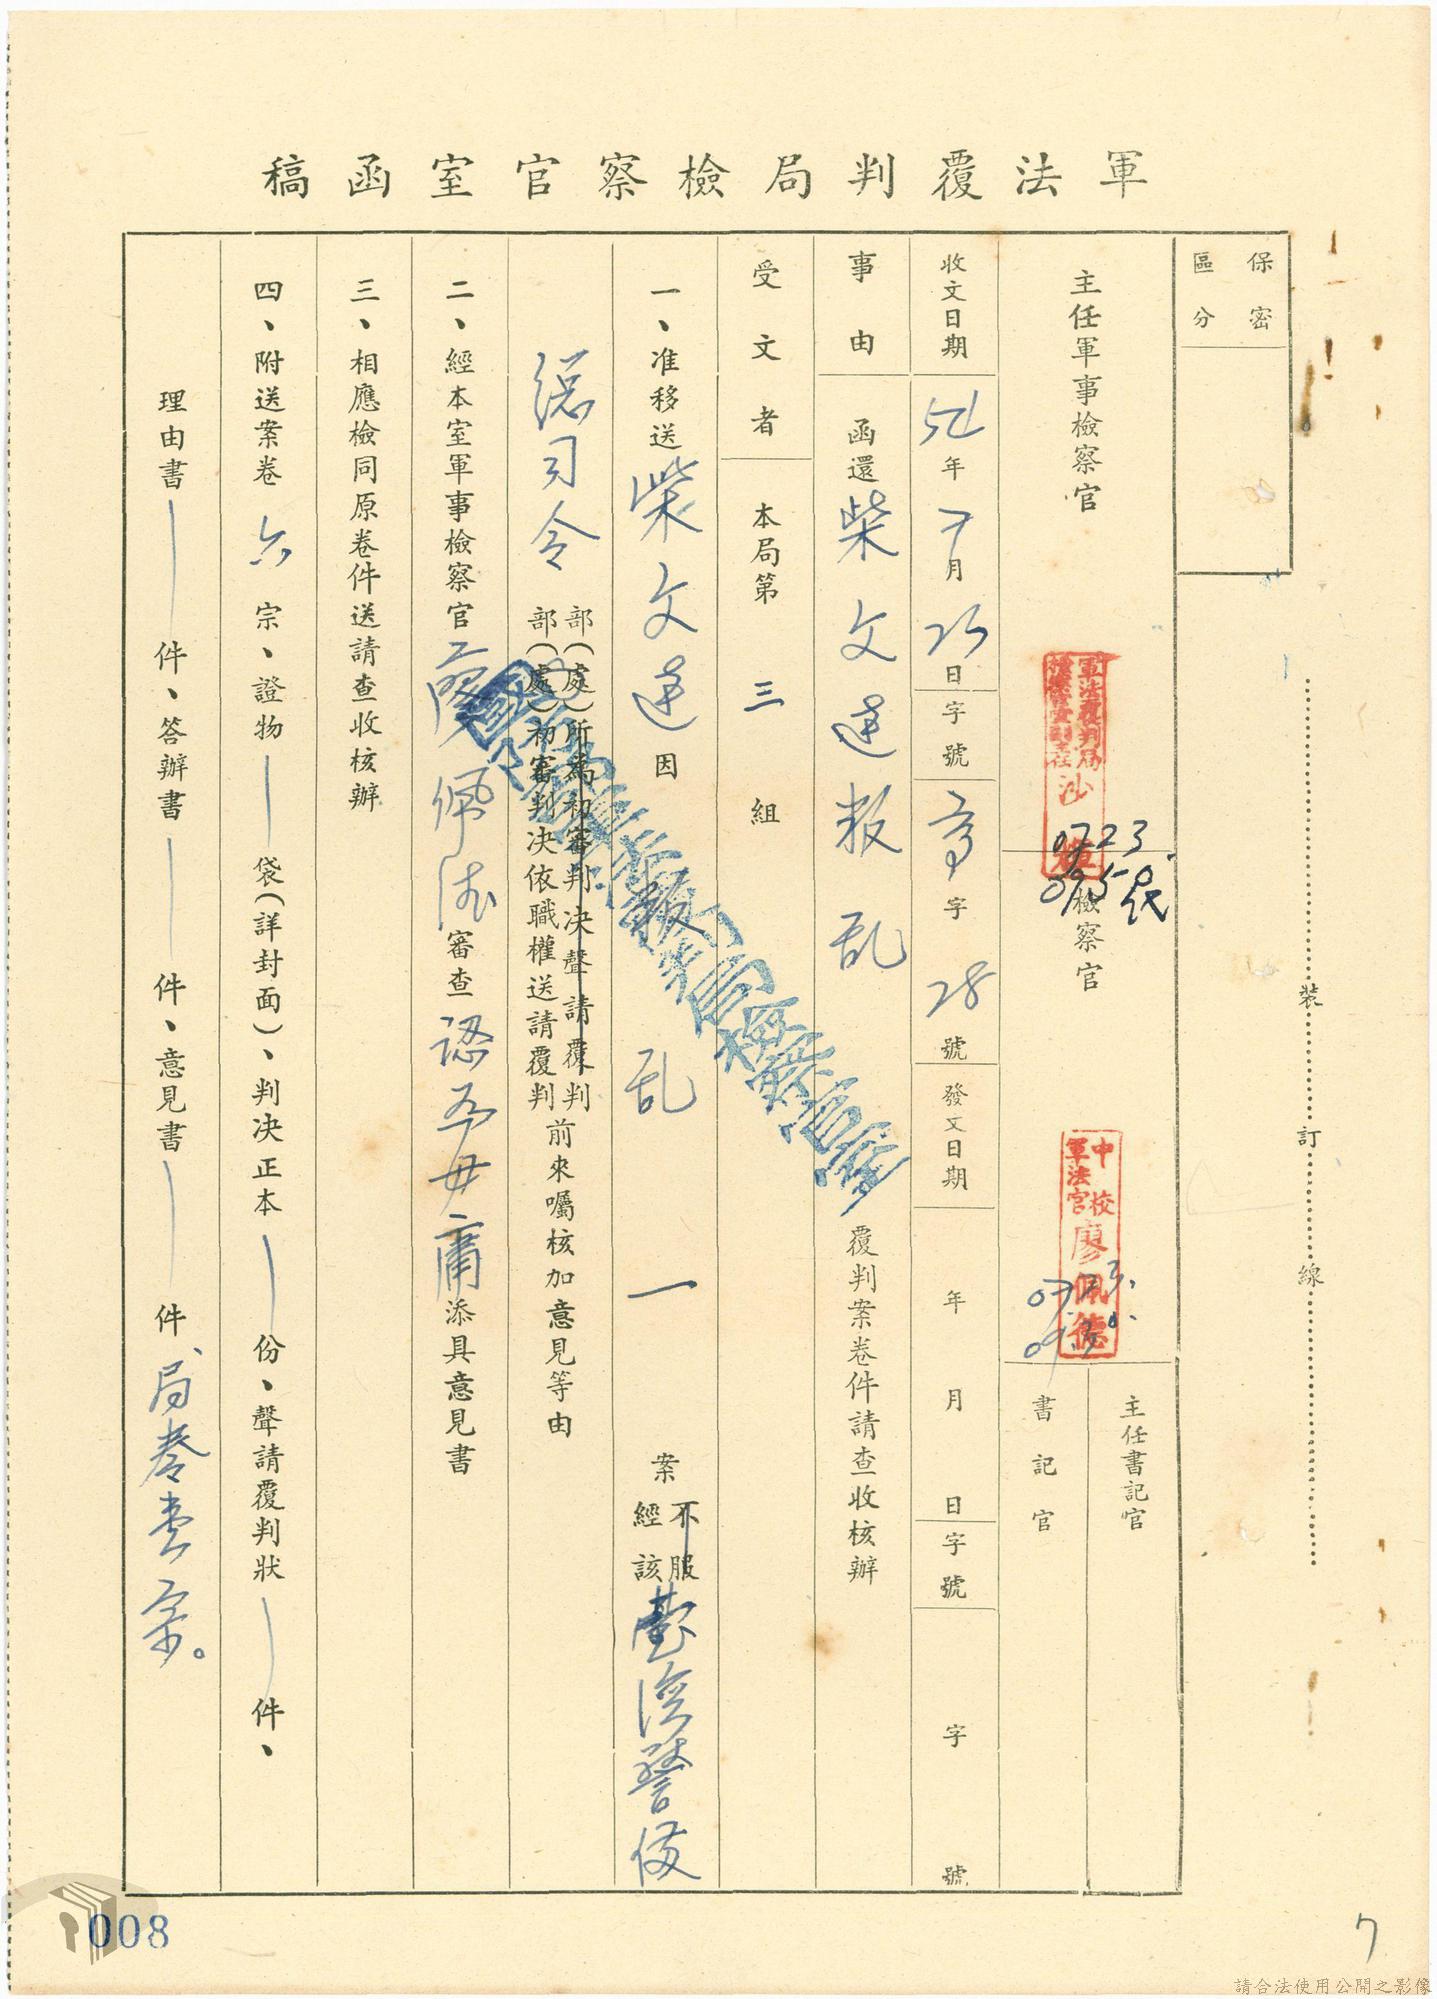 軍法覆判局檢察官室函稿
保密
區分
主任軍事檢察官
軍法覆判局
沙
0723
0950
檢察官
中校
軍法官
廖佩德
主任書記官
書記官
收文日期
年 7月 25日
字號
字 28號
發文日期
年 月 日
字號
字 號
事由
函還柴文達叛乱 覆判案卷件請查收核辦
受文者
本局第三組
一、准移送柴文達因叛乱一案不服
經該臺灣警備
總司令部(處)所為初審判決聲請覆判
部(處)初審判決依職權送請覆判
前來囑核加意見等由
二、經本室軍事檢察官廖佩德審查認為毋庸添具意見書
三、相應檢同原卷件送請查收核辦
四、附送案卷六宗、證物 袋(詳封面)、判決正本 份、聲請覆判狀 件、
理由書 件、答辯書 件、意見書 件、局卷壹宗。
國防部軍法覆判局檢察官室
裝
訂
線
008
7
請合法使用公開之影像